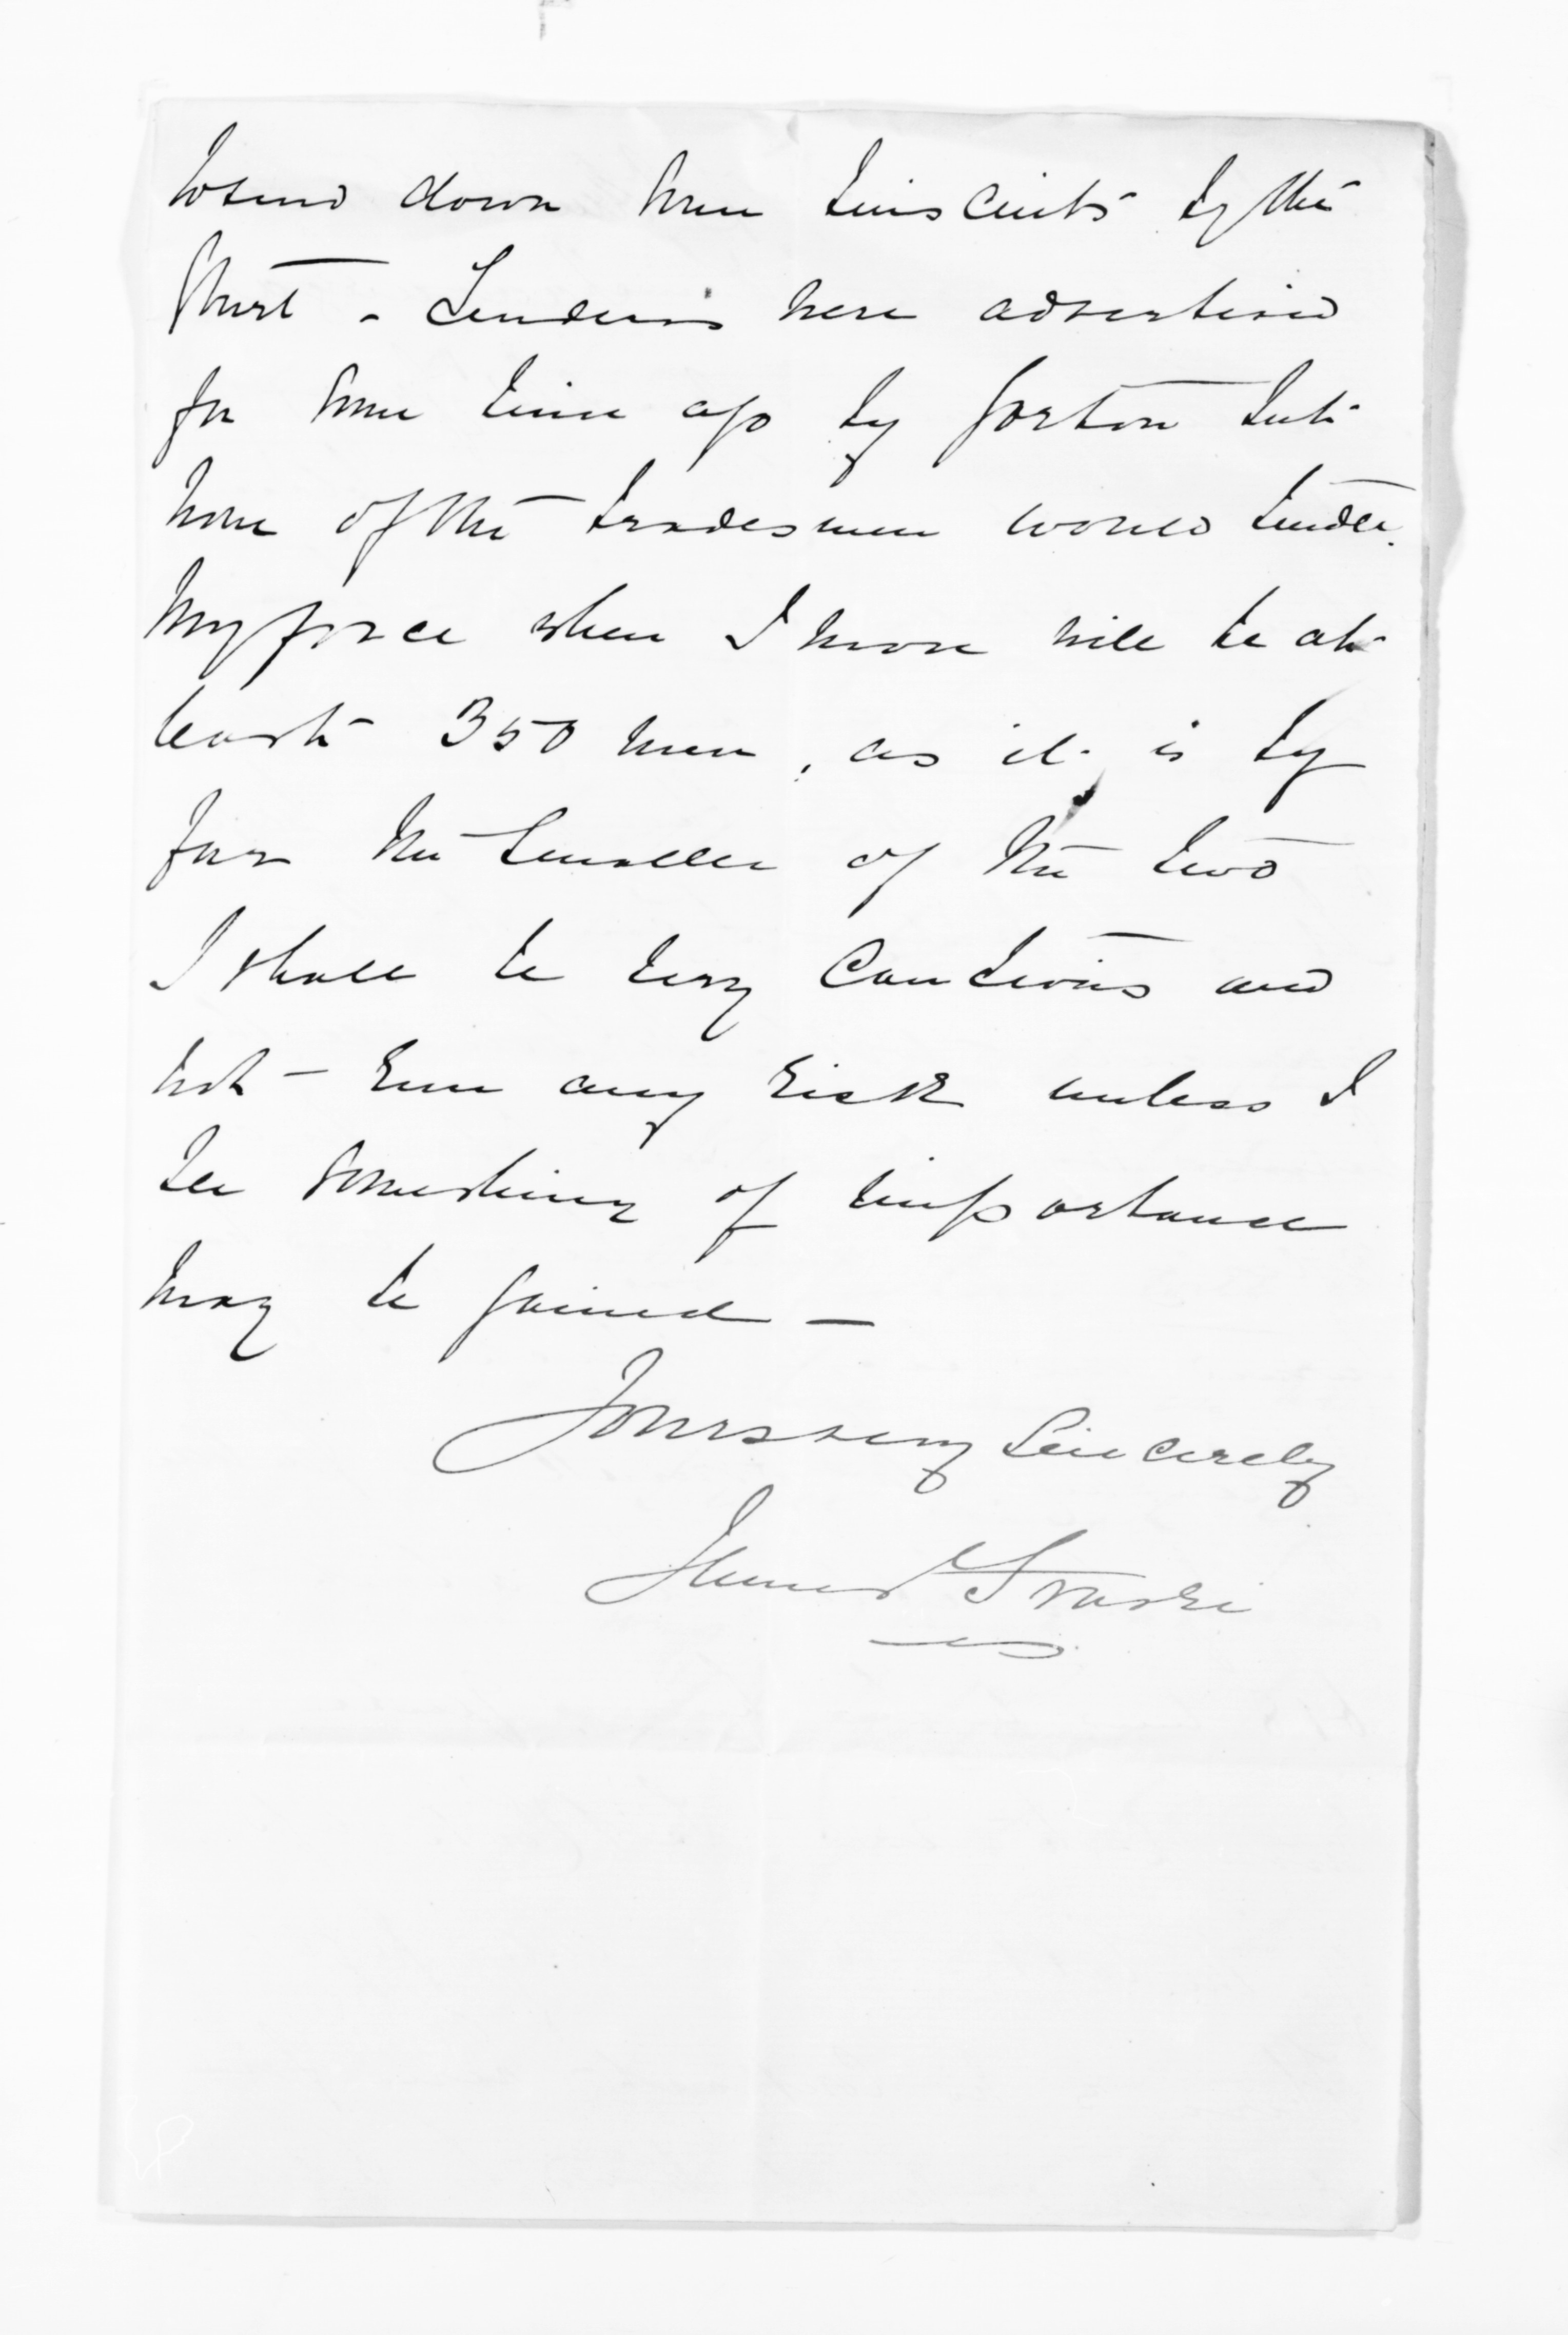 to send down some biscuits by the
Sturt - Tenders were advertised
for some time ago by Gorton but
none of the tradesmen would tender.
My force when I move will be at
least 350 men, as it is by
far the smaller of the two
I shall be very Cautious and
not - run any risk unless I
see something of importance
may be gained -
Yours very Sincerely
James Fraser